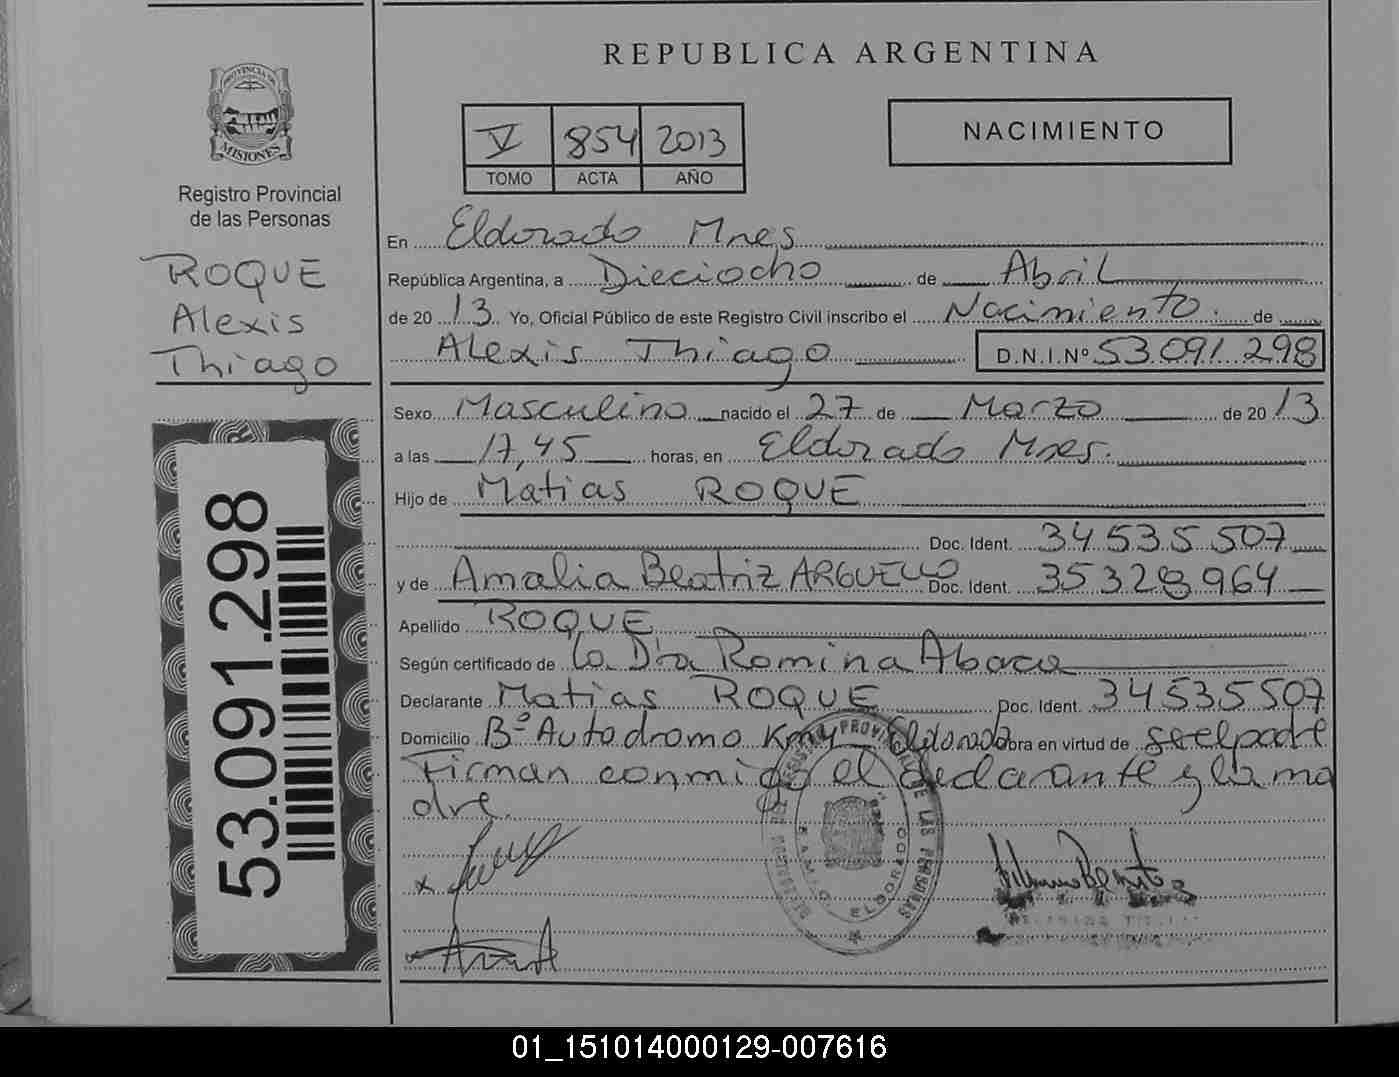 REPUBLICA ARGENTINA
PROVINCIA DE
MISIONES
Registro Provincial
de las Personas
ROQUE
Alexis
Thiago
53.091.298
V 854 2013
TOMO ACTA AÑO
NACIMIENTO
En Eldorado Mnes
República Argentina, a Dieciocho de Abril
de 2013 Yo, Oficial Público de este Registro Civil inscribo el Nacimiento de
Alexis Thiago D.N.I.Nº 53.091.298
Sexo Masculino nacido el 27 de Marzo de 2013
a las 17,45 horas, en Eldorado Mnes.
Hijo de Matias ROQUE
Doc. Ident. 34535507
y de Amalia Beatriz ARGUELLO Doc. Ident. 35328964
Apellido ROQUE
Según certificado de la Dra Romina Abaca
Declarante Matias ROQUE Doc. Ident. 34535507
Domicilio Bº Autodromo Km4 Eldorado obra en virtud de ser el padre
Firman conmigo el declarante y la ma
dre.
x
DE LAS PERSONAS
ELDORADO
01_151014000129-007616